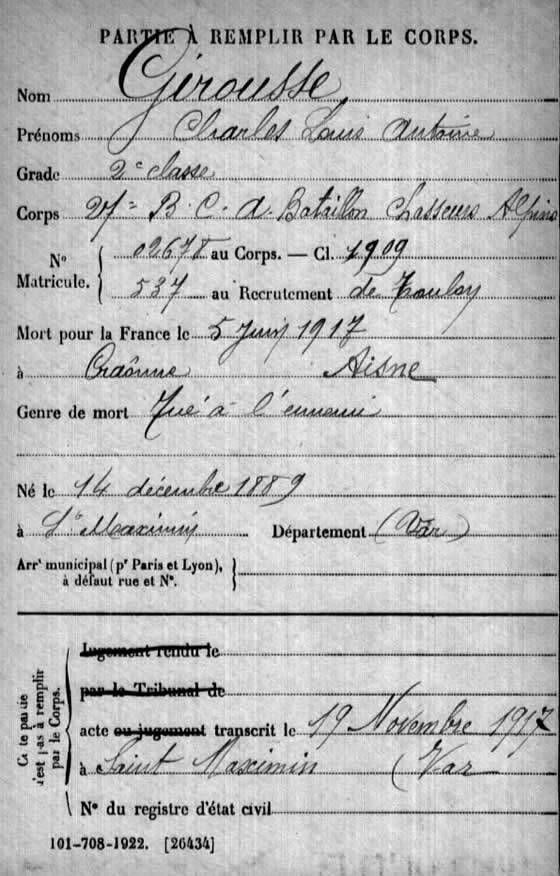 PARTIE À REMPLIR PAR LE CORPS.
Nom Girousse
Prénoms Charles Louis Antoine
Grade 2e classe
Corps 27e B. C. A. Bataillon Chasseurs Alpins
No Matricule. 02678 au Corps. — Cl. 1909
537 au Recrutement de Toulon
Mort pour la France le 5 Juin 1917
à Craônne Aisne
Genre de mort Tué à l'ennemi
Né le 14 décembre 1889
à St Maximin Département (Var)
Arrt municipal (pr Paris et Lyon),
à défaut rue et No.
Cette partie n'est pas à remplir par le Corps.
Jugement rendu le
par le Tribunal de
acte ou jugement transcrit le 19 Novembre 1917
à Saint Maximin (Var
No du registre d'état civil
101-708-1922. [26434]